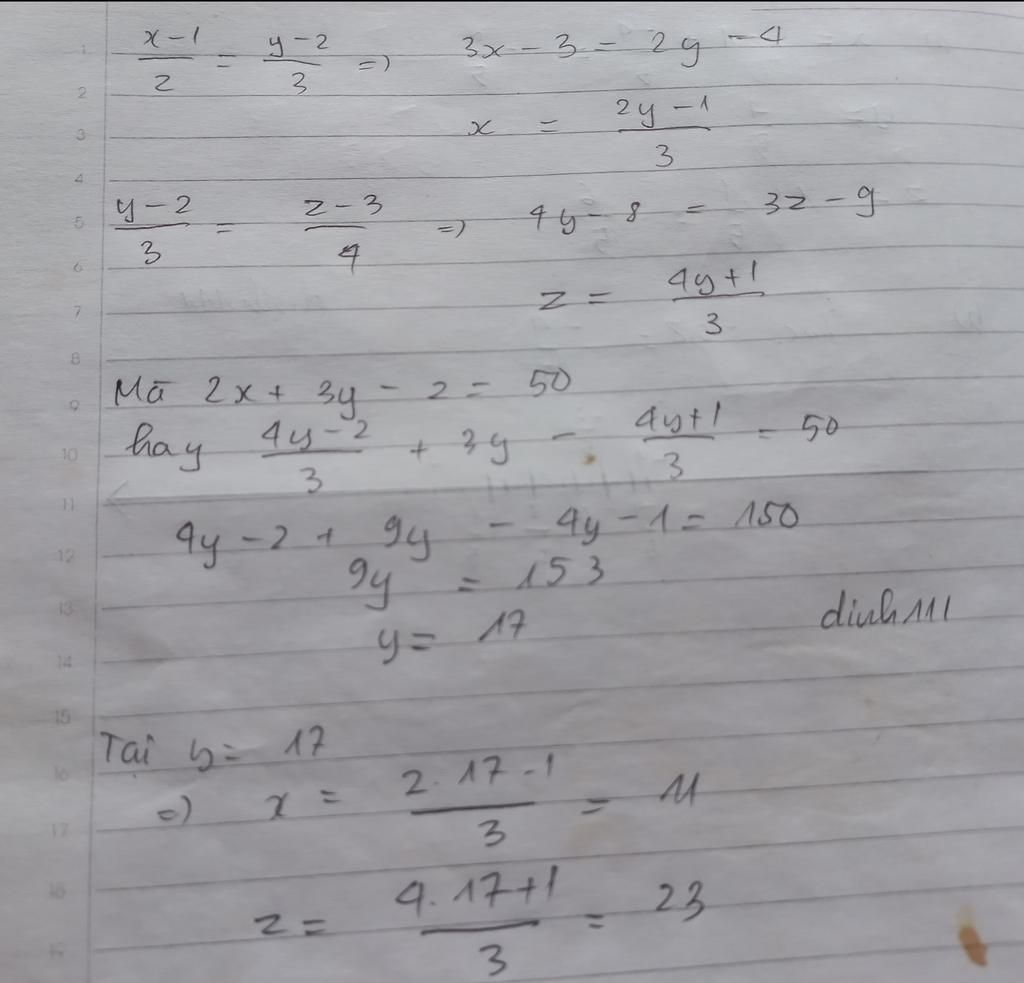 x-1/2 = y-2/3 => 3x - 3 = 2y - 4
x = 2y - 1/3
y-2/3 = z-3/4 => 4y - 8 = 3z - 9
z = 4y+1/3
Mà 2x + 3y - z = 50
hay 4y-2/3 + 3y - 4y+1/3 = 50
4y - 2 + 9y - 4y - 1 = 150
9y = 153
y = 17
dinh111
Tại y = 17
=> x = 2.17-1/3 = 11
z = 4.17+1/3 = 23
1
2
3
4
5
6
7
8
9
10
11
12
13
14
15
16
17
18
19